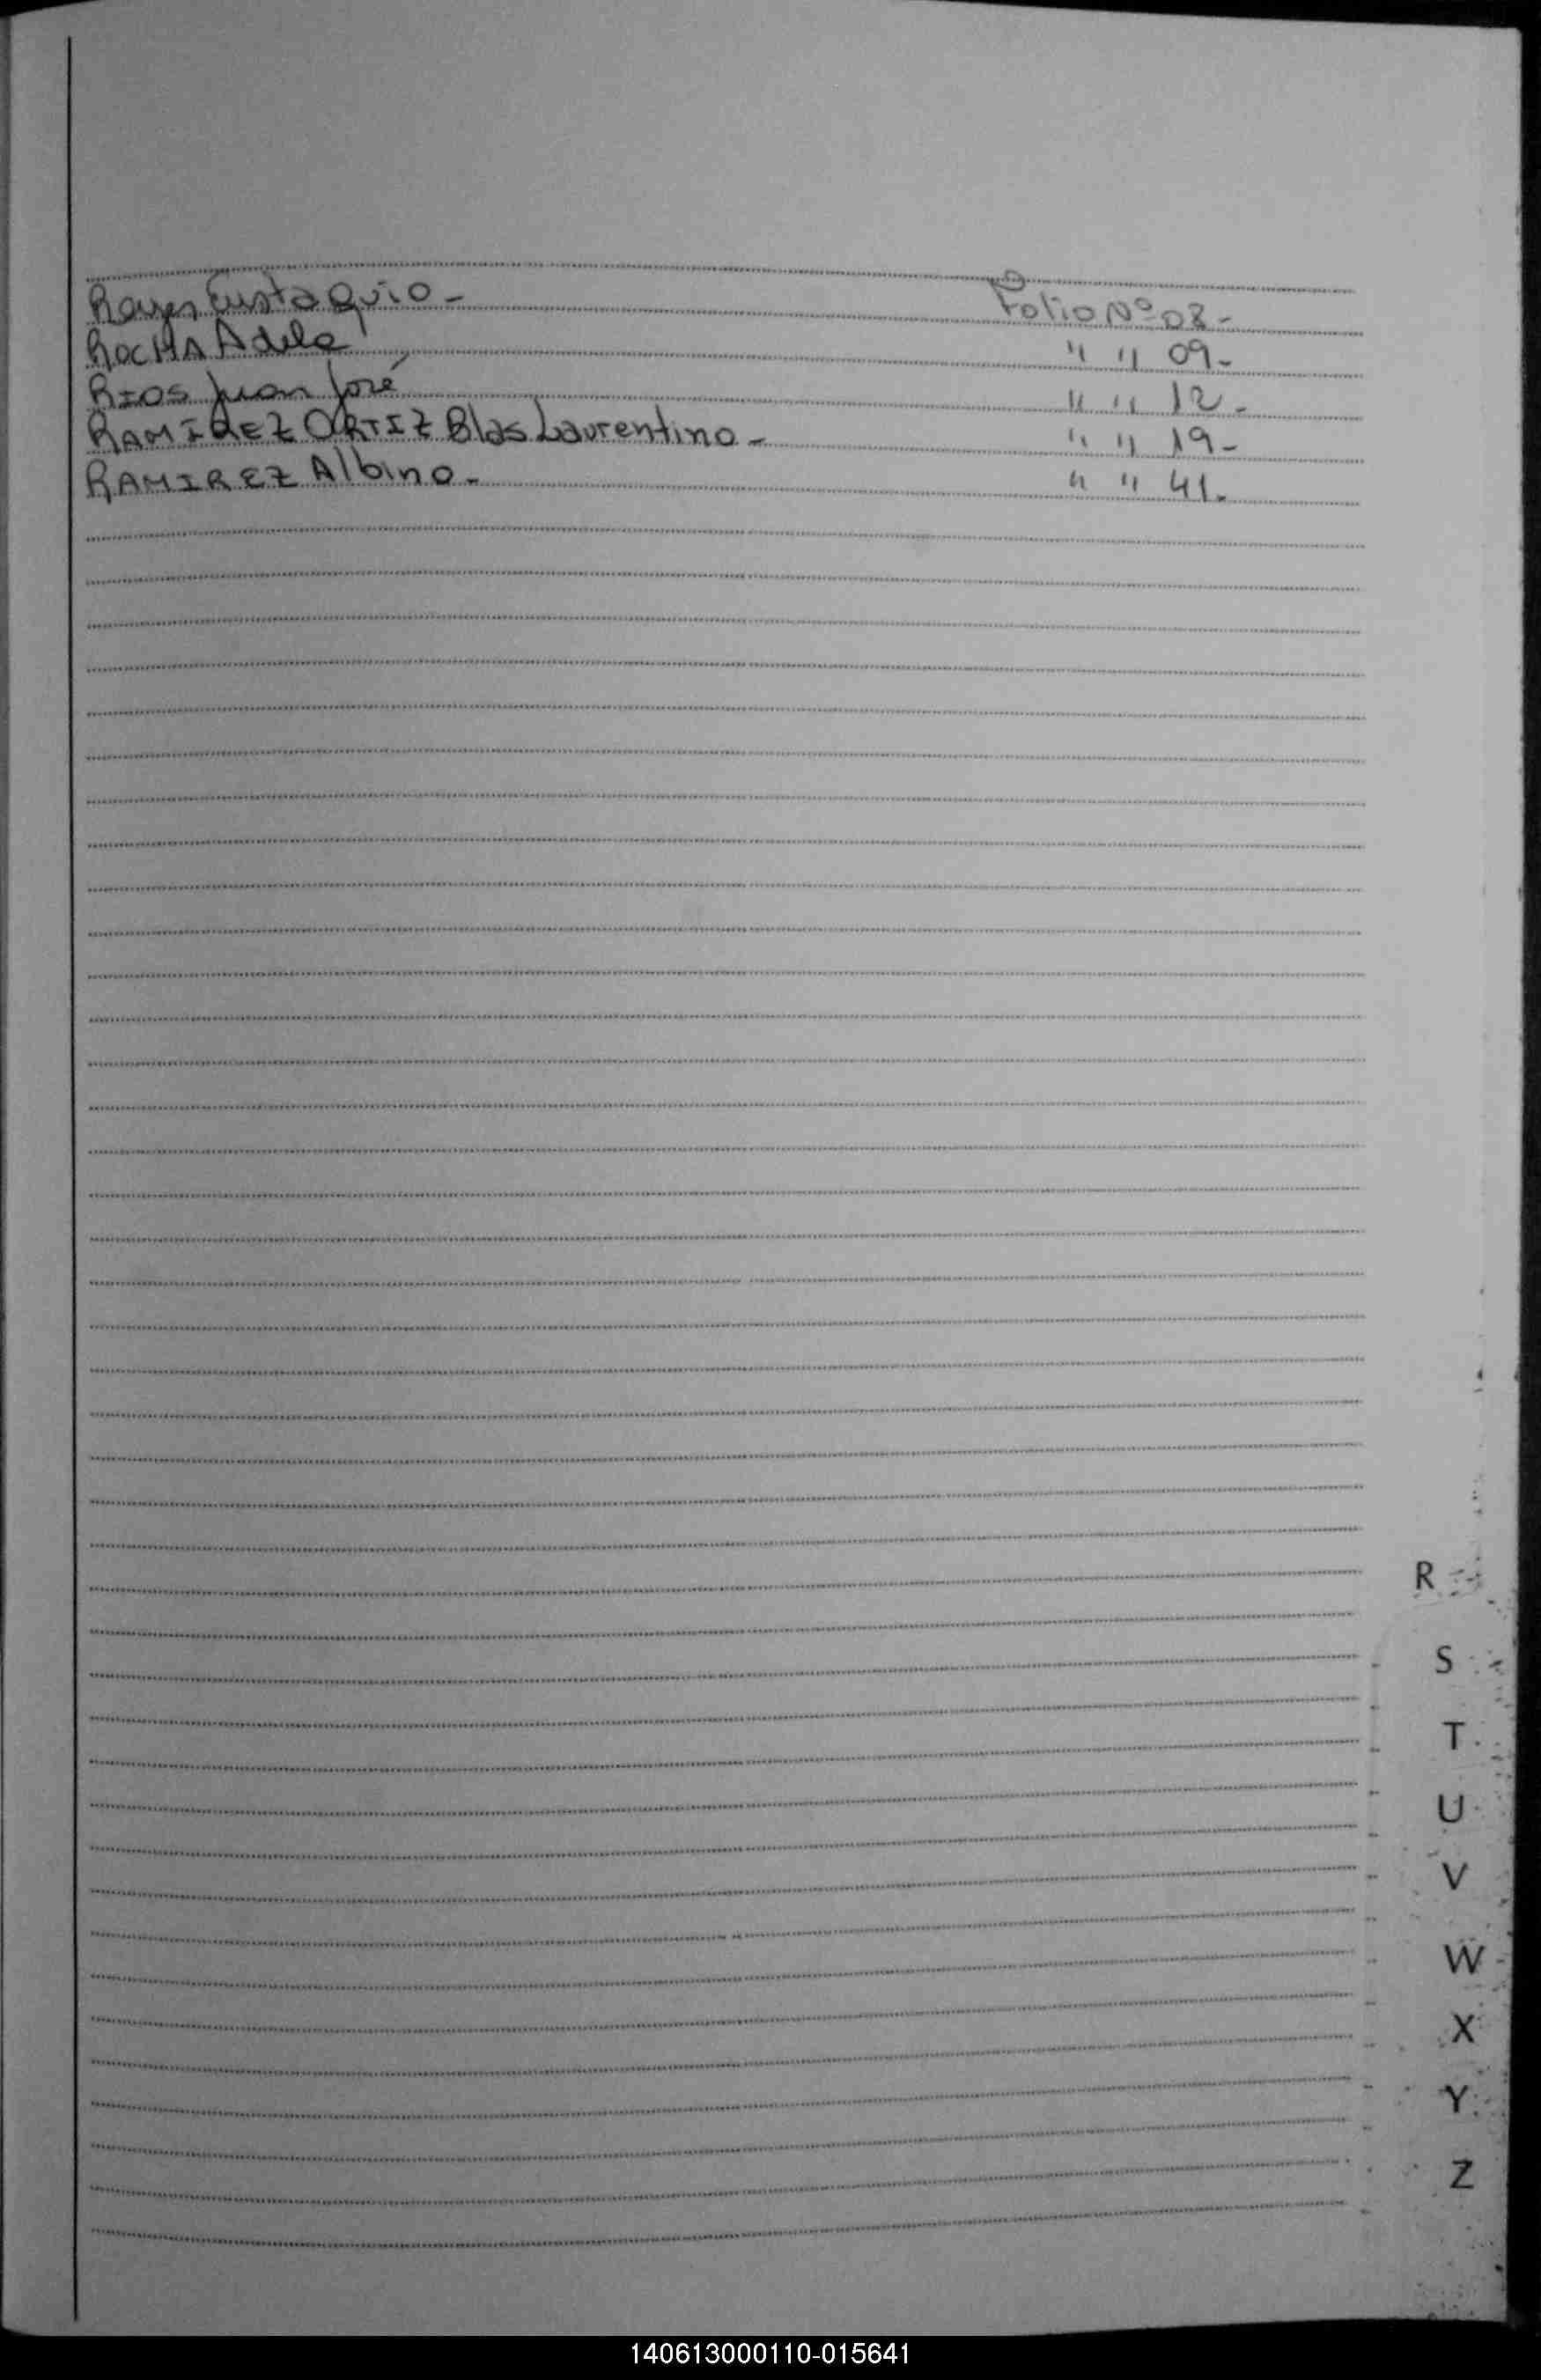 Reyes Eustaquio - Folio Nº 08-
ROCHA Adela " " 09-
RIOS Juan José " " 12-
RAMIREZ ORTIZ Blas Laurentino - " " 19-
RAMIREZ Albino. " " 41.
R
S
T
U
V
W
X
Y
Z
140613000110-015641